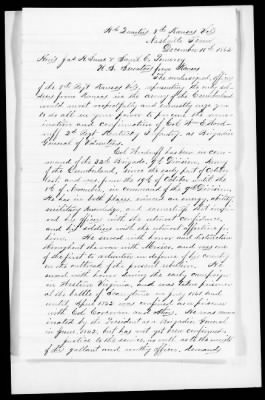 Hd Quarters 8th Kansas Vols
Nashville Tenn
December 10th 1862
Hons Jas H Lane & Saml C. Pomeroy
U. S. Senators from Kansas
The undersigned, officers
of the 8th Regt Kansas Vols, representing the only sol-
diers from Kansas in the army of the Cumberland
would most respectfully and earnestly urge you
to do all in your power to present the nom-
ination and confirmation of Col Wm E Woodr-
uff 2d Regt Kentucky Infantry, as Brigadier
General of Volunteers.
Col Woodruff has been in com-
mand of the 32d Brigade, 9th Division, Army
of the Cumberland, since the early part of October
last, and was from the of October until the
1st of November, in command of the 9th Division.
He has in both places, evinced an energy, ability,
military knowledge, and
ed by officers with the utmost confidence,
and his soldiers with the utmost affection for
him. He served with honor and distinction
throughout the war with Mexico, and was one
of the first to volunteer in defence of his country
on the outbreak of the present rebellion. He
served with honor during the early campaign
in Western Virginia, and was taken prisoner
at the battle of in July 1861 and
until April 1862 was confined as a prisoner
with Col Corcoran and others. He was nom-
inated by the President as a Brigadier General
in June, 1862, but has not yet been confirmed.
Justice to the service, as well as to the merits
of this gallant and worthy officer, demands